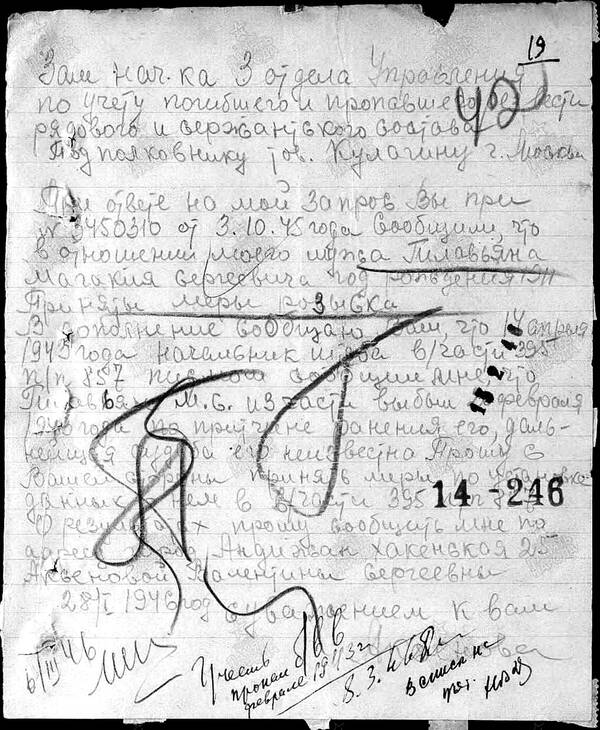 19
Зам нач-ка 3 отдела Управления
по учету погибшего и пропавшего без вести
рядового и сержантского состава
Подполковнику тов. Кулагину г. Москва
При ответе на мой запрос Вы при
№ 3450310 от 3.10.45 года сообщили, что
в отношении моего мужа Гилавьяна
Магакия Сергеевича год рождения
Приняты меры розыска
В дополнение сообщаю Вам, что 14 апреля
1943 года начальник штаба в/части 395
п/п 857 письмом сообщил мне что
М.С. из части выбыл февраля
года по причине ранения его, даль-
нейшая судьба его неизвестна Прошу с
Вашей стороны принять меры по установке
данных о нем в в/части 395
14-246
О результатах прошу сообщить мне по
адресу гор. Андижан Хакенская 25
Аксеновой Валентины Сергеевны
28/I 1946 год с уважением к вам
6/III 46
Учесть
пропал б/в
феврале 1943 г
8.3.46